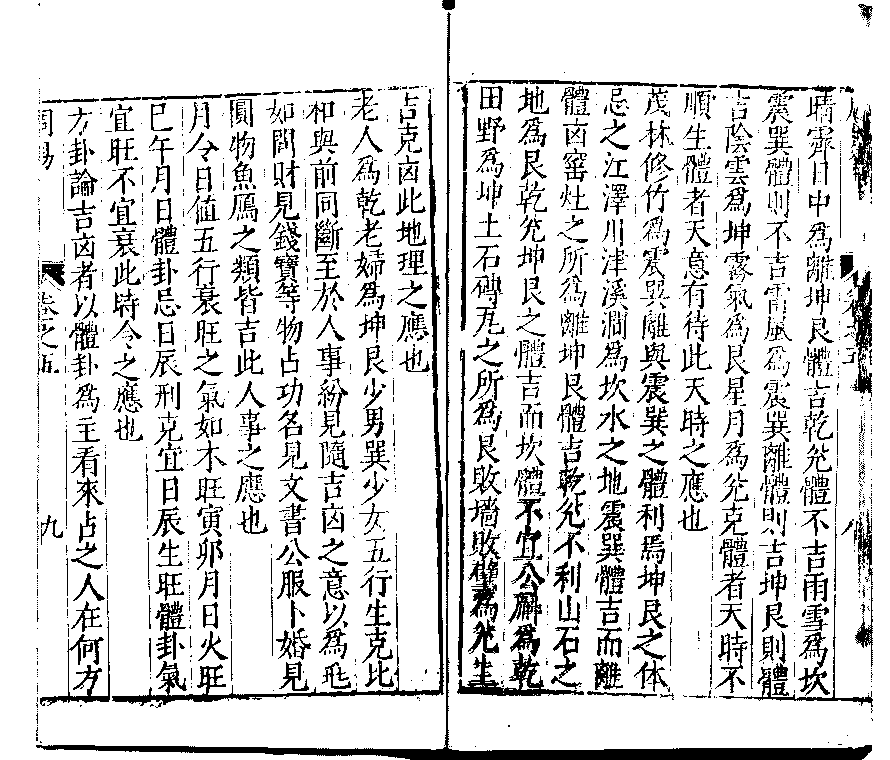 晴霽日中爲離坤艮體吉乾兊體不吉雨雪爲坎
震巽體則不吉雷風爲震巽離體則吉坤艮則體
吉陰雲爲坤霧氣爲艮星月爲兊克體者天時不
順生體者天意有待此天時之應也
茂林修竹爲震巽離與震巽之體利焉坤艮之体
忌之江澤川津溪澗爲坎水之地震巽體吉而離
體凶窑灶之所爲離坤艮體吉乾兊不利山石之
地爲艮乾兊坤艮之體吉而坎體不宜公廨爲乾
田野爲坤土石磚瓦之所爲艮敗墻敗壁爲兊生
吉克凶此地理之應也
老人爲乾老婦爲坤艮少男巽少女五行生克比
和與前同斷至於人事紛見隨吉凶之意以爲
如問財見錢寶等物占功名見文書公服卜婚見
圓物魚鴈之類皆吉此人事之應也
月令日值五行衰旺之氣如木旺寅卯月日火旺
巳午月日體卦忌日辰刑克宜日辰生旺體卦氣
宜旺不宜衰此時令之應也
方卦論吉凶者以體卦爲主看來占之人在何方
周易
卷之五
九